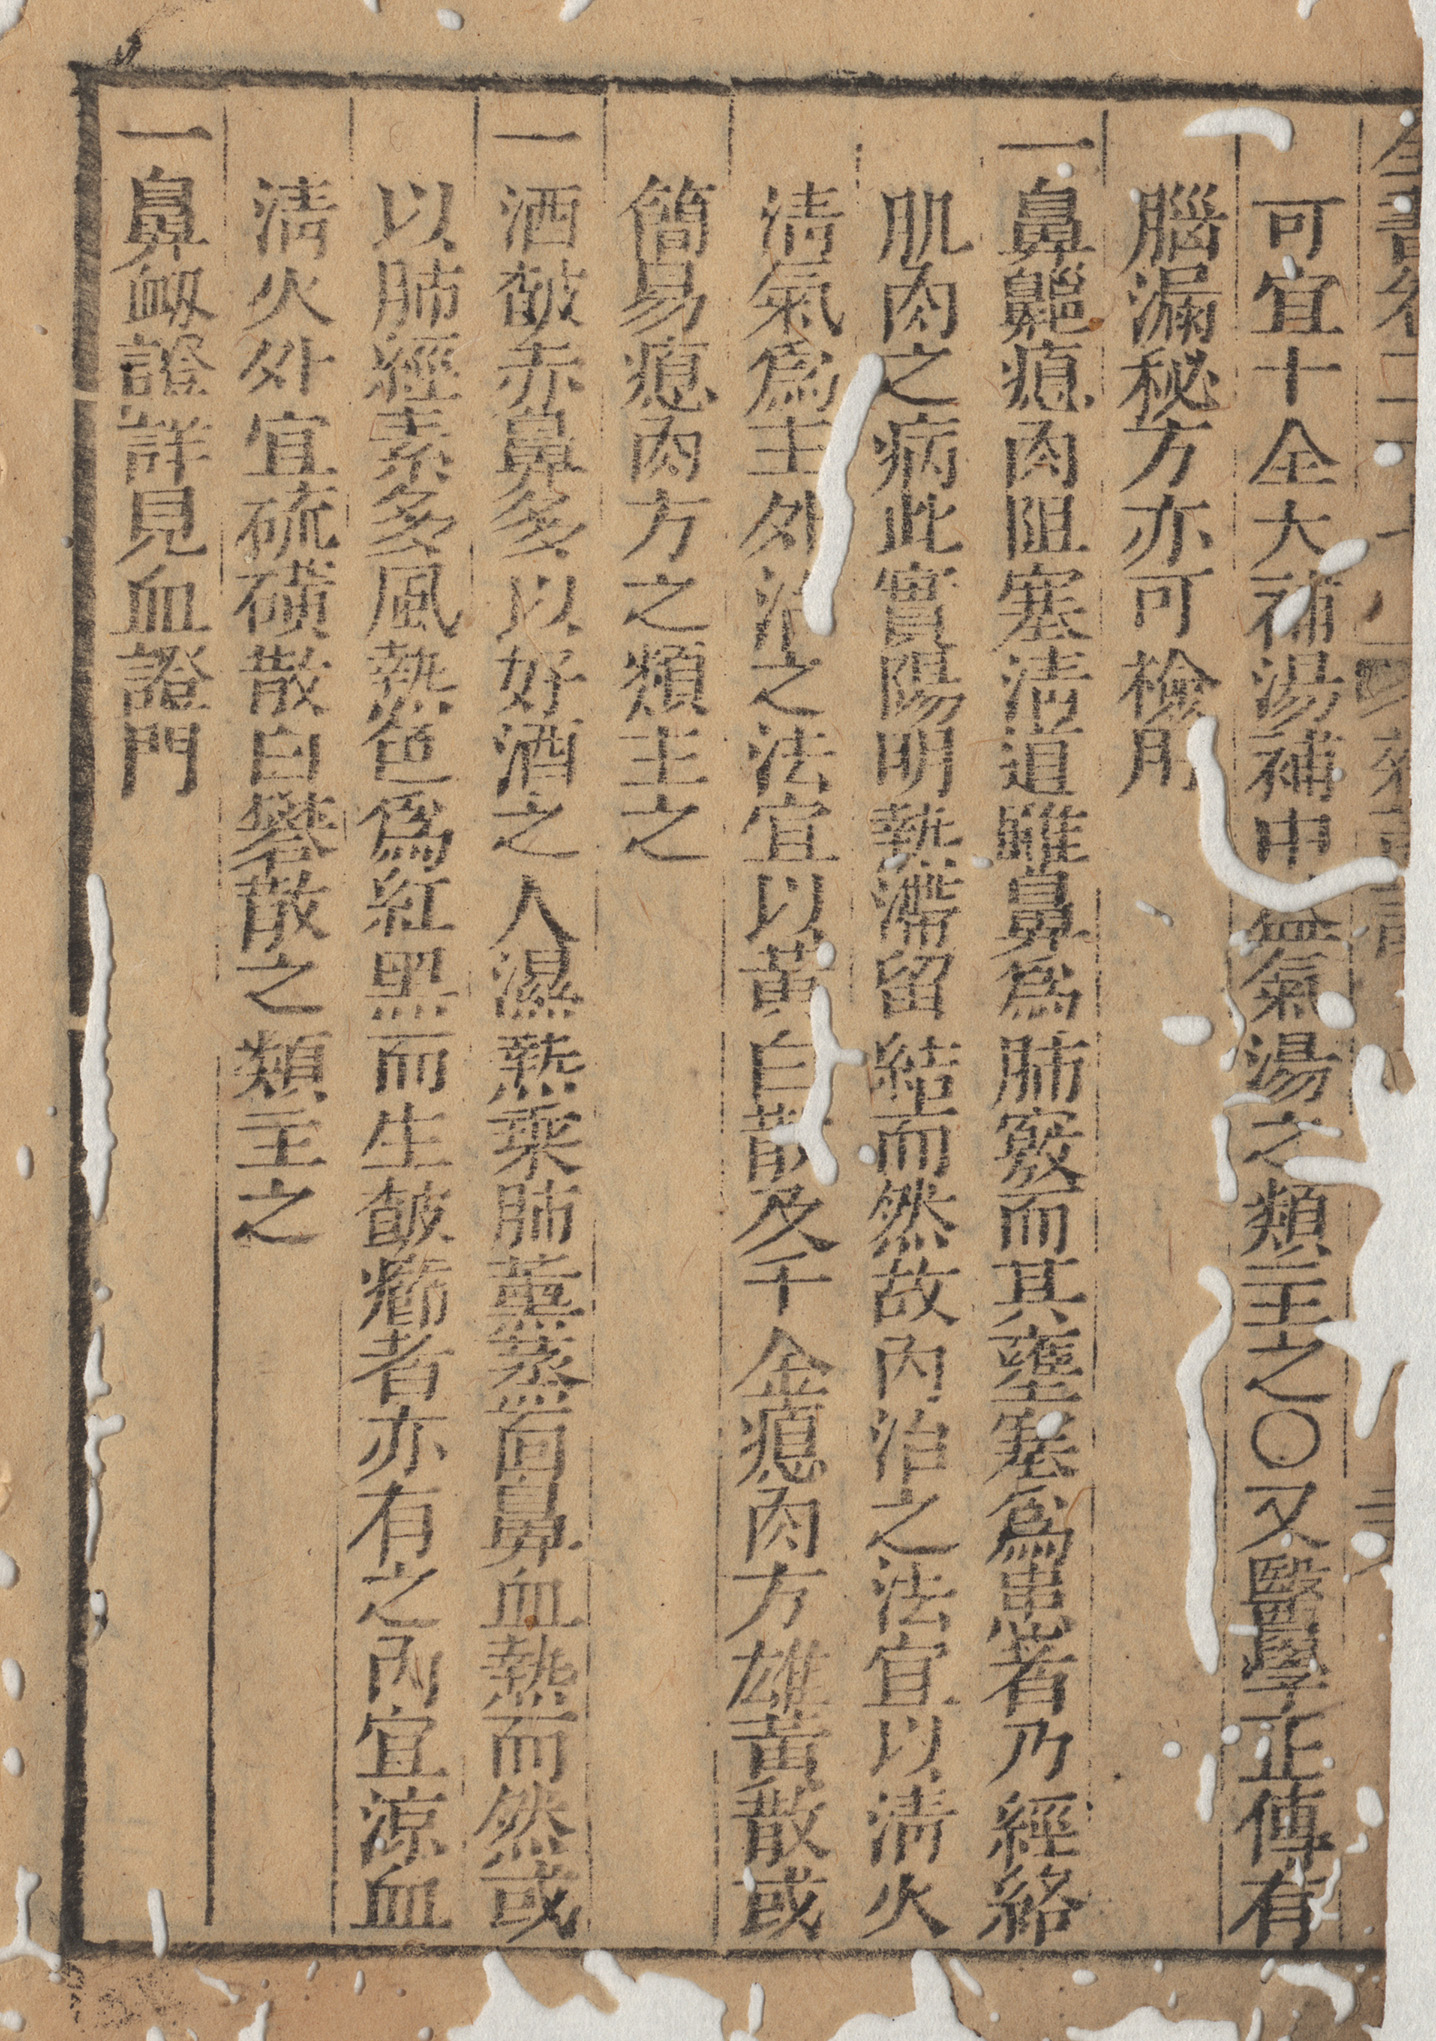 可宜十全大補湯補中益氣湯之類主之〇又醫學正傳有
腦漏秘方亦可檢用
一鼻齆瘜肉阻塞清道雖鼻爲肺竅而其壅塞爲患者乃經絡
肌肉之病此實陽明熱滯留結而然故內治之法宜以清火
清氣爲主外治之法宜以黃白散及千金瘜肉方雄黃散或
簡易瘜肉方之類主之
一酒皶赤鼻多以好酒之人濕熱乘肺薰蒸面鼻血熱而然或
以肺經素多風熱色爲紅黑而生皶癤者亦有之內宜涼血
清火外宜硫磺散白礬散之類主之
一鼻衂證詳見血證門